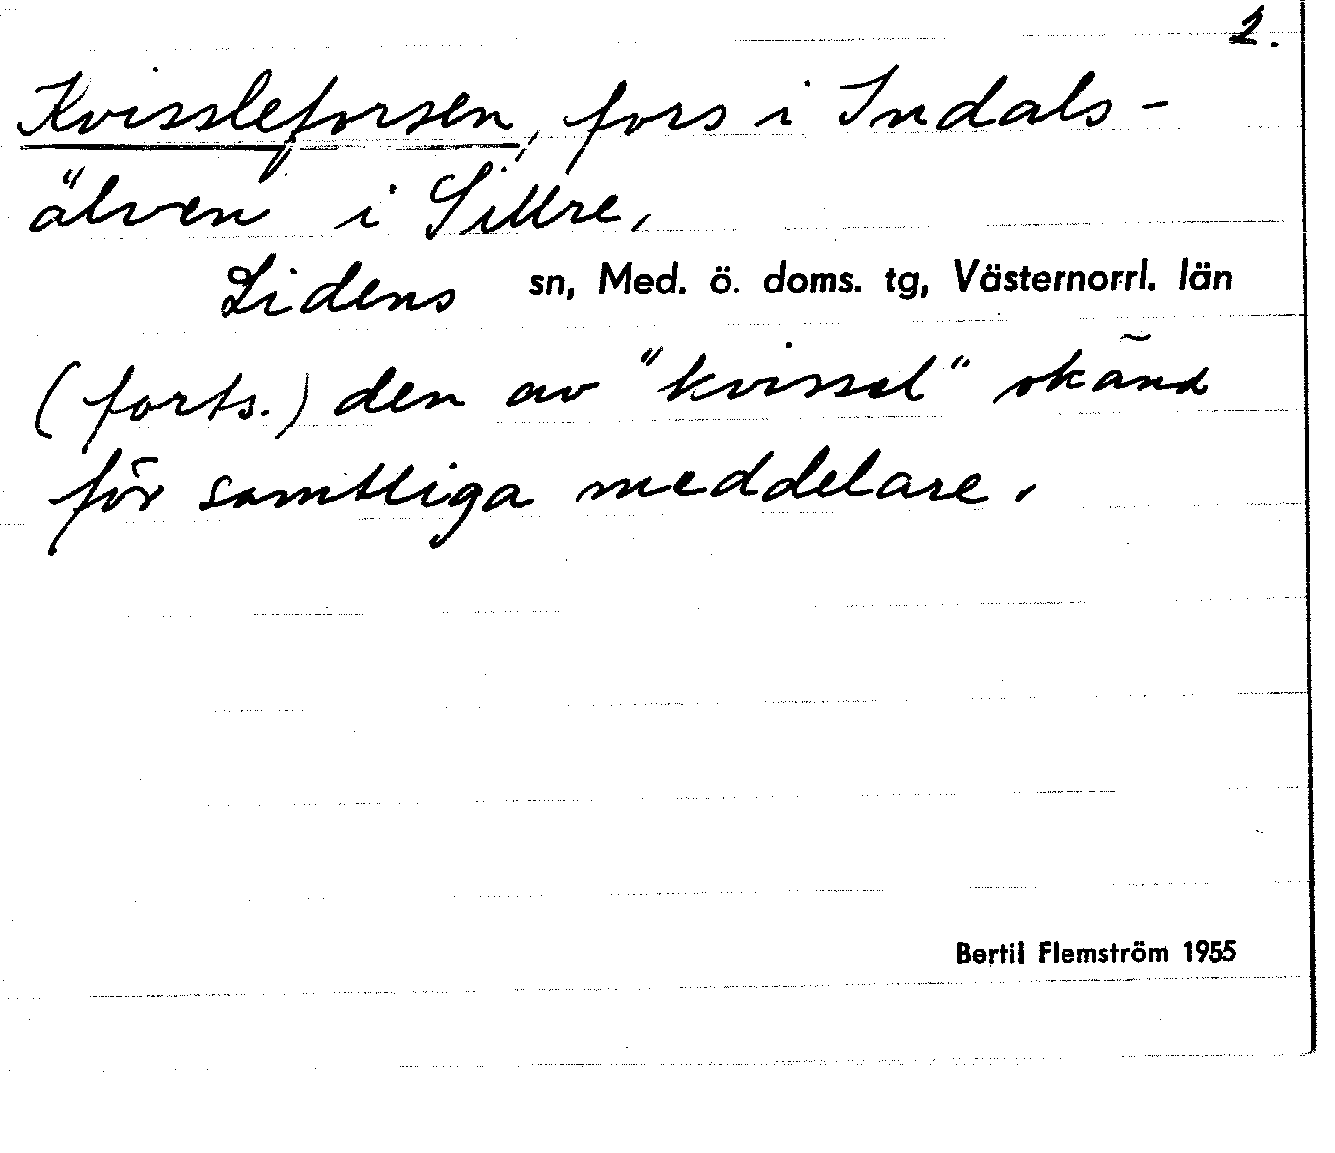 2.
Kvissleforsen, fors i Indals-
älven i Sillre,
Lidens sn, Med. ö. doms. tg, Västernorrl. län
(forts.) den av "kvissel" okänd
för samtliga meddelare.
Bertil Flemström 1955